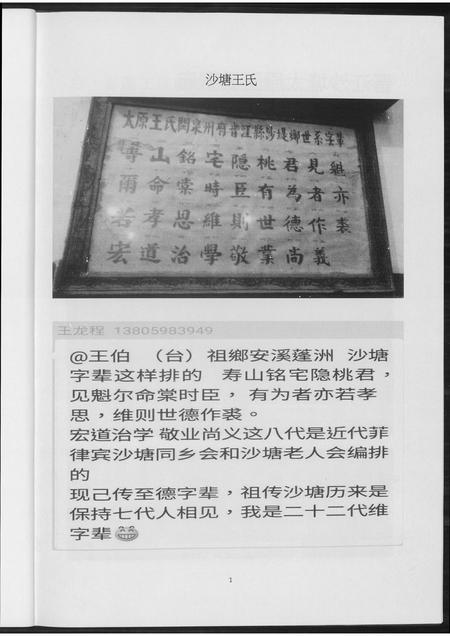 沙塘王氏
太原王氏閩泉州府晋江縣莎堤鄉世系字輩
壽山銘宅隐桃君見魁
爾命棠時臣有為者亦
若孝思維則世德作裘
宏道治學敬業尚義
王龙程 13805983949
@王伯 （台）祖鄉安溪蓬洲 沙塘
字辈这样排的 寿山铭宅隐桃君，
见魁尔命棠时臣，有为者亦若孝
思，维则世德作裘。
宏道治学 敬业尚义这八代是近代菲
律宾沙塘同乡会和沙塘老人会编排
的
现己传至德字辈，祖传沙塘历来是
保持七代人相见，我是二十二代维
字辈😁
1